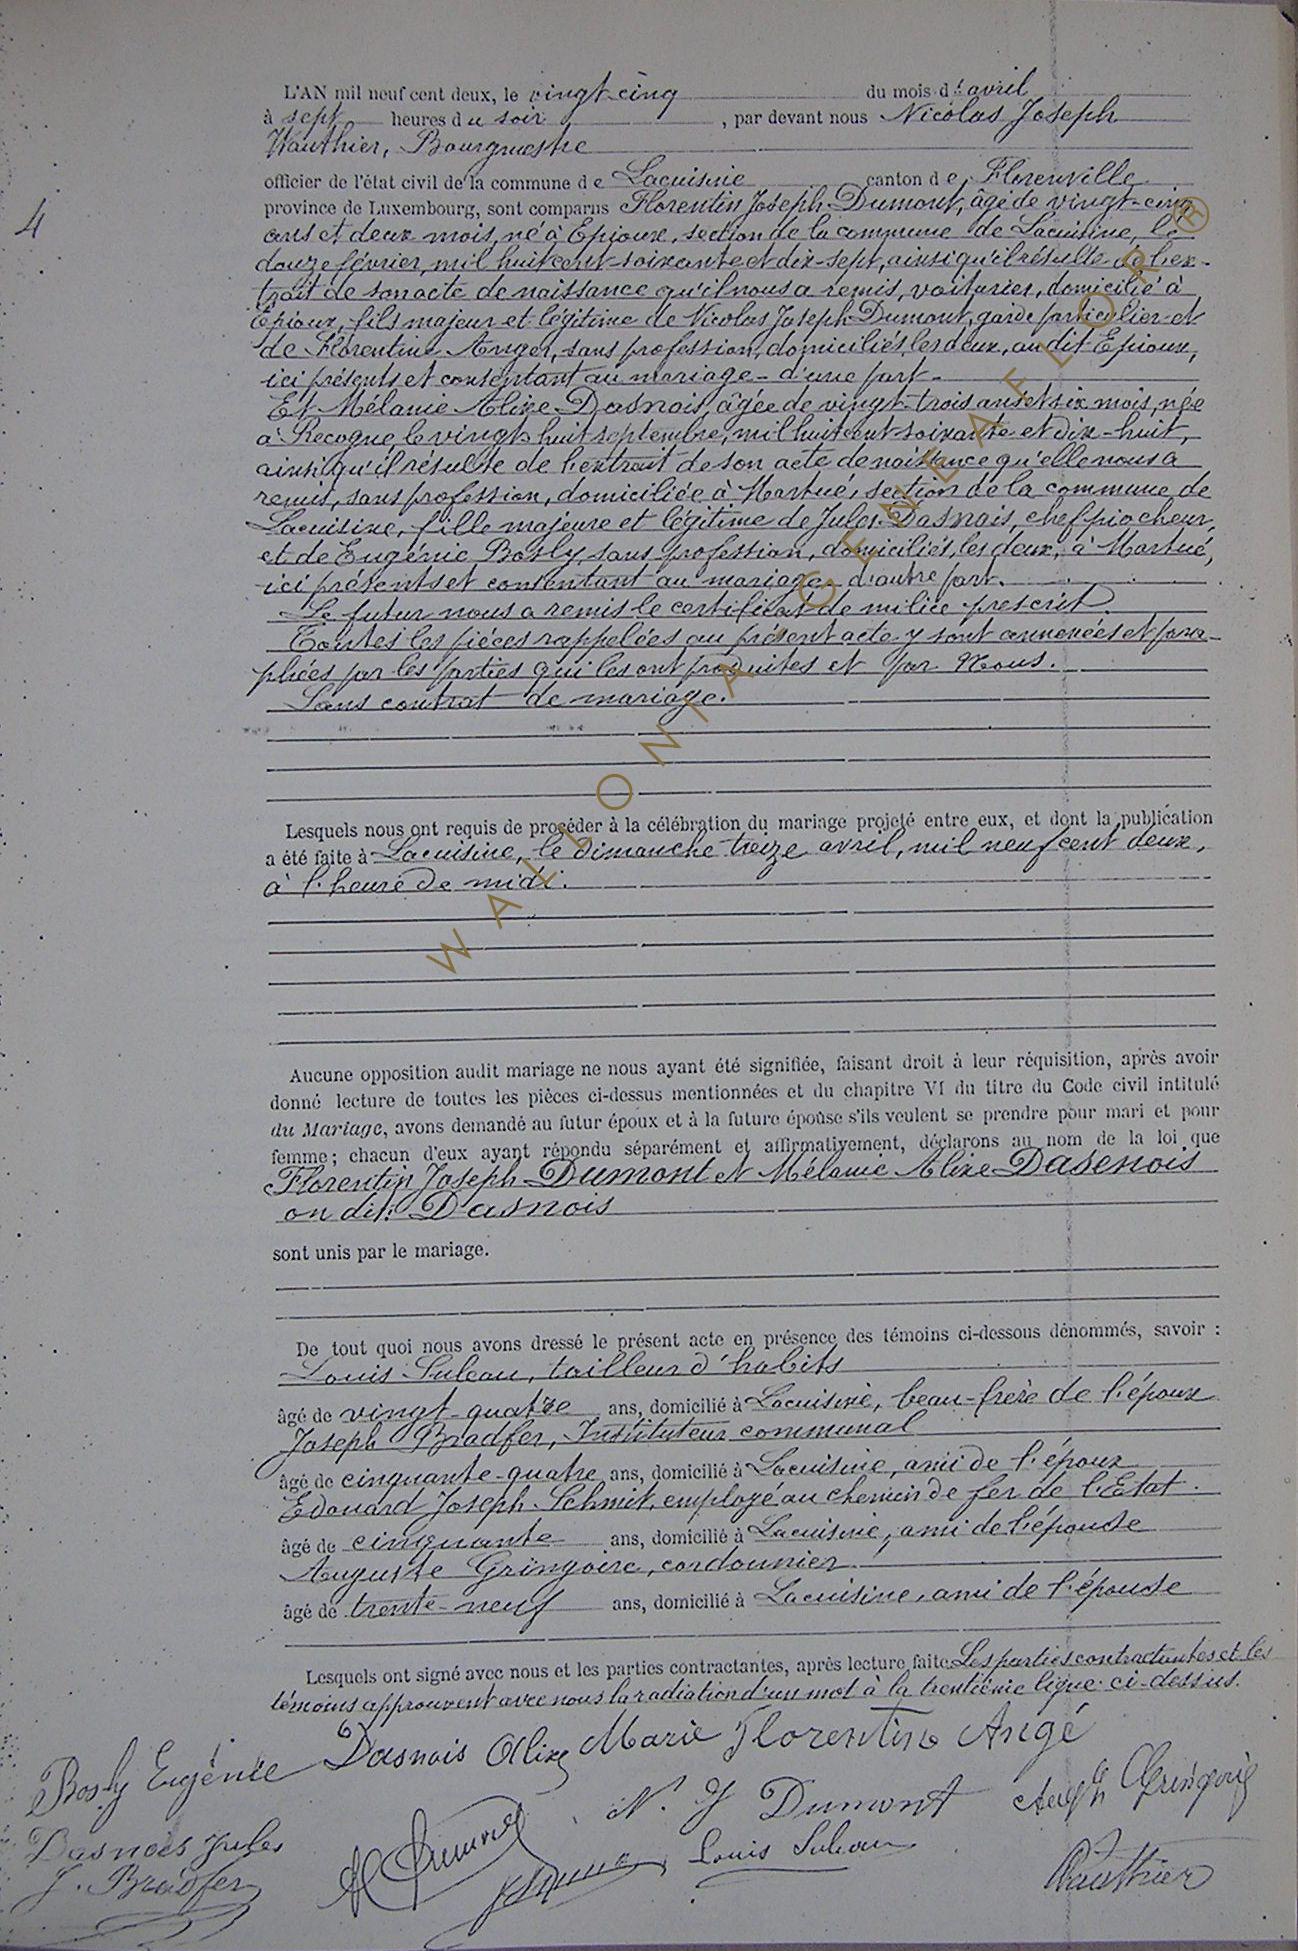 4
L'AN mil neuf cent deux, le vingt-cinq du mois d'avril
à sept heures du soir, par devant nous Nicolas Joseph
Wauthier, Bourgmestre
officier de l'état civil de la commune de Lacuisine canton de Florenville
province de Luxembourg, sont comparus Florentin Joseph Dumont, âgé de vingt-cinq
ans et deux mois, né à Epioux, section de la commune de Lacuisine, le
douze février, mil huit cent soixante et dix-sept, ainsi qu'il résulte de l'ex-
trait de son acte de naissance qu'il nous a remis, voiturier, domicilié à
Epioux, fils majeur et légitime de Nicolas Joseph Dumont, garde particulier et
de Florentine Anger, sans profession, domiciliés, les deux, au dit Epioux,
ici présents et consentant au mariage - d'une part -
Et Mélanie Alixe Dasnois, âgée de vingt-trois ans et six mois, née
à Recogne, le vingt-huit septembre, mil huit cent soixante et dix-huit,
ainsi qu'il résulte de l'extrait de son acte de naissance qu'elle nous a
remis, sans profession, domiciliée à Martué, section de la commune de
Lacuisine, fille majeure et légitime de Jules Dasnois, chef piocheur,
et de Eugénie Bosly, sans profession, domiciliés, les deux, à Martué,
ici présents et consentant au mariage - d'autre part.
Le futur nous a remis le certificat de milice prescrit.
Toutes les pièces rappelées au présent acte y sont annexées et para-
phées par les parties qui les ont produites et par Nous.
Sans contrat de mariage.
Lesquels nous ont requis de procéder à la célébration du mariage projeté entre eux, et dont la publication
a été faite à Lacuisine, le dimanche treize avril, mil neuf cent deux,
à l'heure de midi.
Aucune opposition audit mariage ne nous ayant été signifiée, faisant droit à leur réquisition, après avoir
donné lecture de toutes les pièces ci-dessus mentionnées et du chapitre VI du titre du Code civil intitulé
du Mariage, avons demandé au futur époux et à la future épouse s'ils veulent se prendre pour mari et pour
femme; chacun d'eux ayant répondu séparément et affirmativement, déclarons au nom de la loi que
Florentin Joseph Dumont et Mélanie Alixe Dasenois
on dit: Dasnois
sont unis par le mariage.
De tout quoi nous avons dressé le présent acte en présence des témoins ci-dessous dénommés, savoir :
Louis Suleau, tailleur d'habits
âgé de vingt-quatre ans, domicilié à Lacuisine, beau-frère de l'époux
Joseph Bradfer, Instituteur communal
âgé de cinquante-quatre ans, domicilié à Lacuisine, ami de l'époux
Edouard Joseph Schmit, employé au chemin de fer de l'Etat.
âgé de cinquante ans, domicilié à Lacuisine, ami de l'épouse
Auguste Gringoire, cordonnier.
âgé de trente-neuf ans, domicilié à Lacuisine, ami de l'épouse
Lesquels ont signé avec nous et les parties contractantes, après lecture faite. Les parties contractantes et les
témoins approuvent avec nous la radiation d'un mot à la trentième ligne ci-dessus.
Bosly Eugénie Dasnois Alixe Marie Florentine Angé
N. J Dumont Aug Gringoire
Dasnois Jules
J. Bradfer
Louis Suleau
Wauthier
WALLONIA GENEAFLOR ®